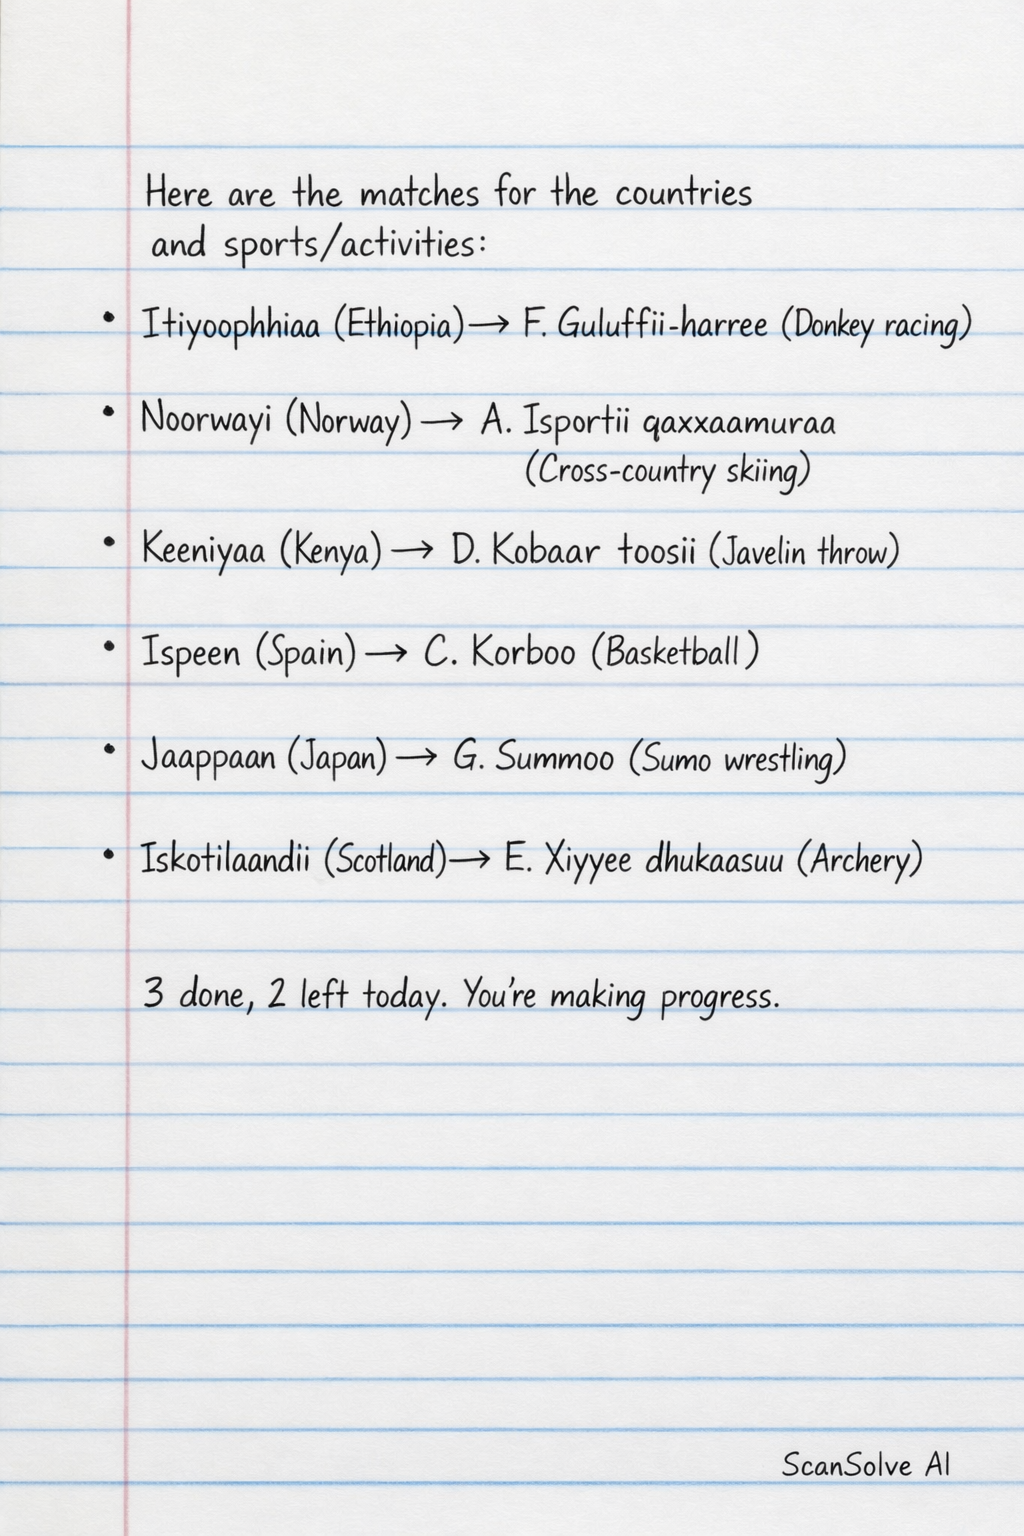 Here are the matches for the countries
and sports/activities:
• Itiyoophhiaa (Ethiopia) → F. Guluffii-harree (Donkey racing)
• Noorwayi (Norway) → A. Isportii qaxxaamuraa
(Cross-country skiing)
• Keeniyaa (Kenya) → D. Kobaar toosii (Javelin throw)
• Ispeen (Spain) → C. Korboo (Basketball)
• Jaappaan (Japan) → G. Summoo (Sumo wrestling)
• Iskotilaandii (Scotland) → E. Xiyyee dhukaasuu (Archery)
3 done, 2 left today. You're making progress.
ScanSolve AI